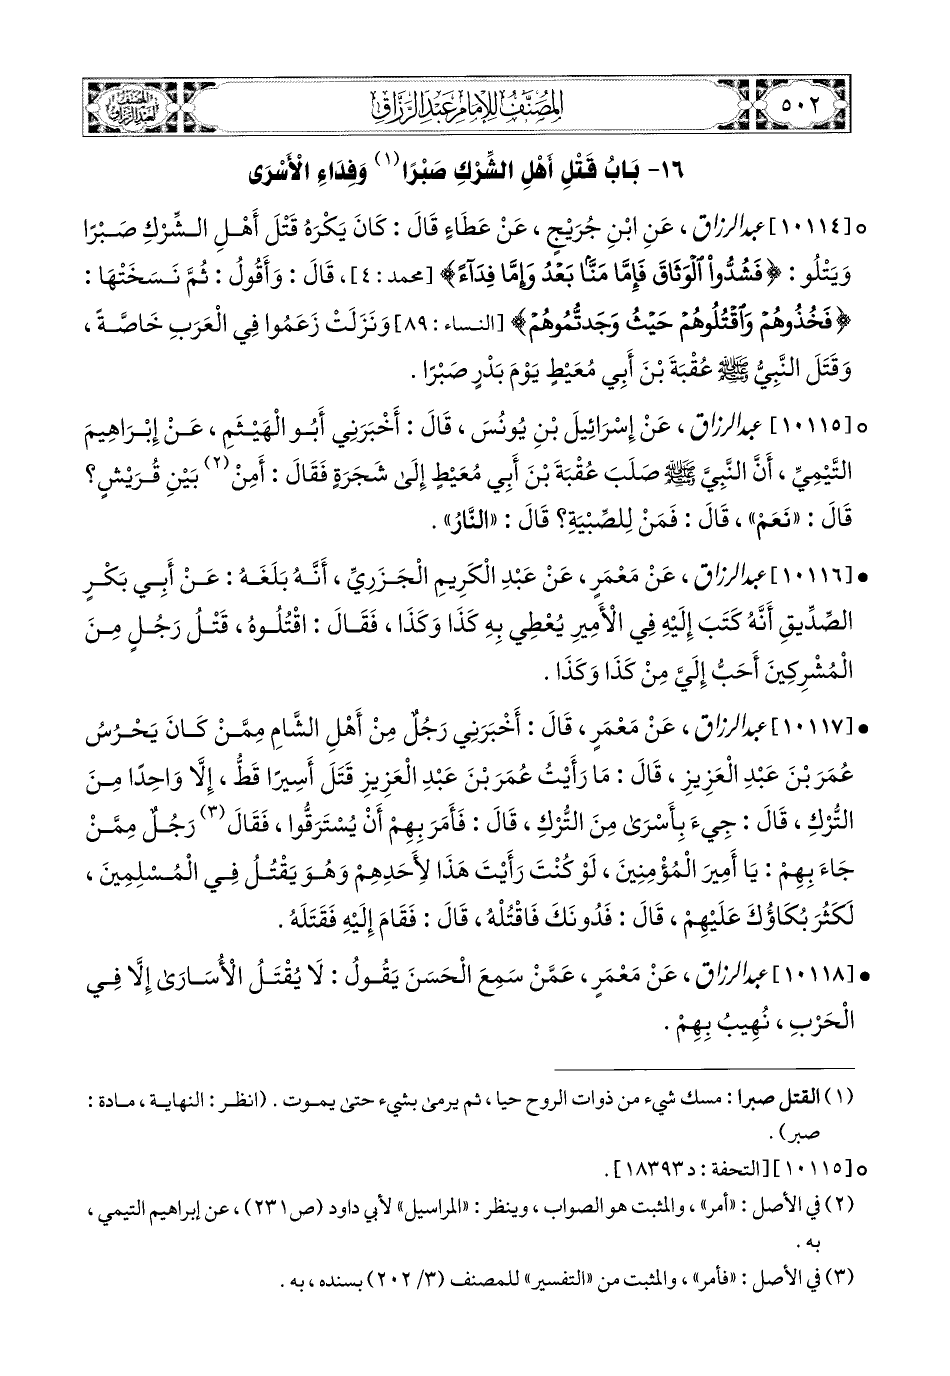 ٥٠٢
المُصَنَّفُ لِلإِمَامِ عَبْدِ الرَّزَّاقِ
المصنف
لعبد الرزاق
١٦- بَابُ قَتْلِ أَهْلِ الشِّرْكِ صَبْرًا (١) وَفِدَاءِ الْأَسْرَى
○ [١٠١١٤] عبد الرزاق ، عَنِ ابْنِ جُرَيْجٍ ، عَنْ عَطَاءٍ قَالَ : كَانَ يَكْرَهُ قَتْلَ أَهْلِ الشِّرْكِ صَبْرًا
وَيَتْلُو : ﴿ فَشُدُّواْ ٱلْوَثَاقَ فَإِمَّا مَنًّۢا بَعْدُ وَإِمَّا فِدَآءً﴾ [محمد : ٤] ، قَالَ : وَأَقُولُ : ثُمَّ نَسَخَتْهَا :
﴿ فَخُذُوهُمْ وَٱقْتُلُوهُمْ حَيْثُ وَجَدتُّمُوهُمْ﴾ [النساء : ٨٩] وَنَزَلَتْ زَعَمُوا فِي الْعَرَبِ خَاصَّةً ،
وَقَتَلَ النَّبِيُّ ﷺ عُقْبَةَ بْنَ أَبِي مُعَيْطٍ يَوْمَ بَدْرٍ صَبْرًا .
○ [١٠١١٥] عبد الرزاق ، عَنْ إِسْرَائِيلَ بْنِ يُونُسَ ، قَالَ : أَخْبَرَنِي أَبُو الْهَيْثَمِ ، عَنْ إِبْرَاهِيمَ
التَّيْمِيِّ ، أَنَّ النَّبِيَّ ﷺ صَلَبَ عُقْبَةَ بْنَ أَبِي مُعَيْطٍ إِلَى شَجَرَةٍ فَقَالَ : أَمِنْ (٢) بَيْنِ قُرَيْشٍ؟
قَالَ : «نَعَمْ» ، قَالَ : فَمَنْ لِلصِّبْيَةِ؟ قَالَ : «النَّارُ» .
• [١٠١١٦] عبد الرزاق ، عَنْ مَعْمَرٍ ، عَنْ عَبْدِ الْكَرِيمِ الْجَزَرِيِّ ، أَنَّهُ بَلَغَهُ : عَنْ أَبِي بَكْرٍ
الصِّدِّيقِ أَنَّهُ كَتَبَ إِلَيْهِ فِي الْأَمِيرِ يُعْطِي بِهِ كَذَا وَكَذَا ، فَقَالَ : اقْتُلُوهُ ، قَتْلُ رَجُلٍ مِنَ
الْمُشْرِكِينَ أَحَبُّ إِلَيَّ مِنْ كَذَا وَكَذَا .
• [١٠١١٧] عبد الرزاق ، عَنْ مَعْمَرٍ ، قَالَ : أَخْبَرَنِي رَجُلٌ مِنْ أَهْلِ الشَّامِ مِمَّنْ كَانَ يَحْرُسُ
عُمَرَ بْنَ عَبْدِ الْعَزِيزِ ، قَالَ : مَا رَأَيْتُ عُمَرَ بْنَ عَبْدِ الْعَزِيزِ قَتَلَ أَسِيرًا قَطُّ ، إِلَّا وَاحِدًا مِنَ
التُّرْكِ ، قَالَ : جِيءَ بِأَسْرَى مِنَ التُّرْكِ ، قَالَ : فَأَمَرَ بِهِمْ أَنْ يُسْتَرَقُّوا ، فَقَالَ (٣) رَجُلٌ مِمَّنْ
جَاءَ بِهِمْ : يَا أَمِيرَ الْمُؤْمِنِينَ ، لَوْ كُنْتَ رَأَيْتَ هَذَا لِأَحَدِهِمْ وَهُوَ يَقْتُلُ فِي الْمُسْلِمِينَ ،
لَكَثُرَ بُكَاؤُكَ عَلَيْهِمْ ، قَالَ : فَدُونَكَ فَاقْتُلْهُ ، قَالَ : فَقَامَ إِلَيْهِ فَقَتَلَهُ .
• [١٠١١٨] عبد الرزاق ، عَنْ مَعْمَرٍ ، عَمَّنْ سَمِعَ الْحَسَنَ يَقُولُ : لَا يُقْتَلُ الْأُسَارَى إِلَّا فِي
الْحَرْبِ ، نُهِيبُ بِهِمْ .
(١) القتل صبرا : مسك شيء من ذوات الروح حيا ، ثم يرمى بشيء حتى يموت . (انظر : النهاية ، مادة :
صبر) .
○ [١٠١١٥] [التحفة : د ١٨٣٩٣] .
(٢) في الأصل : «أمر» ، والمثبت هو الصواب ، وينظر : «المراسيل» لأبي داود (ص ٢٣١) ، عن إبراهيم التيمي ،
به .
(٣) في الأصل : «فأمر» ، والمثبت من «التفسير» للمصنف (٣/ ٢٠٢) بسنده ، به .